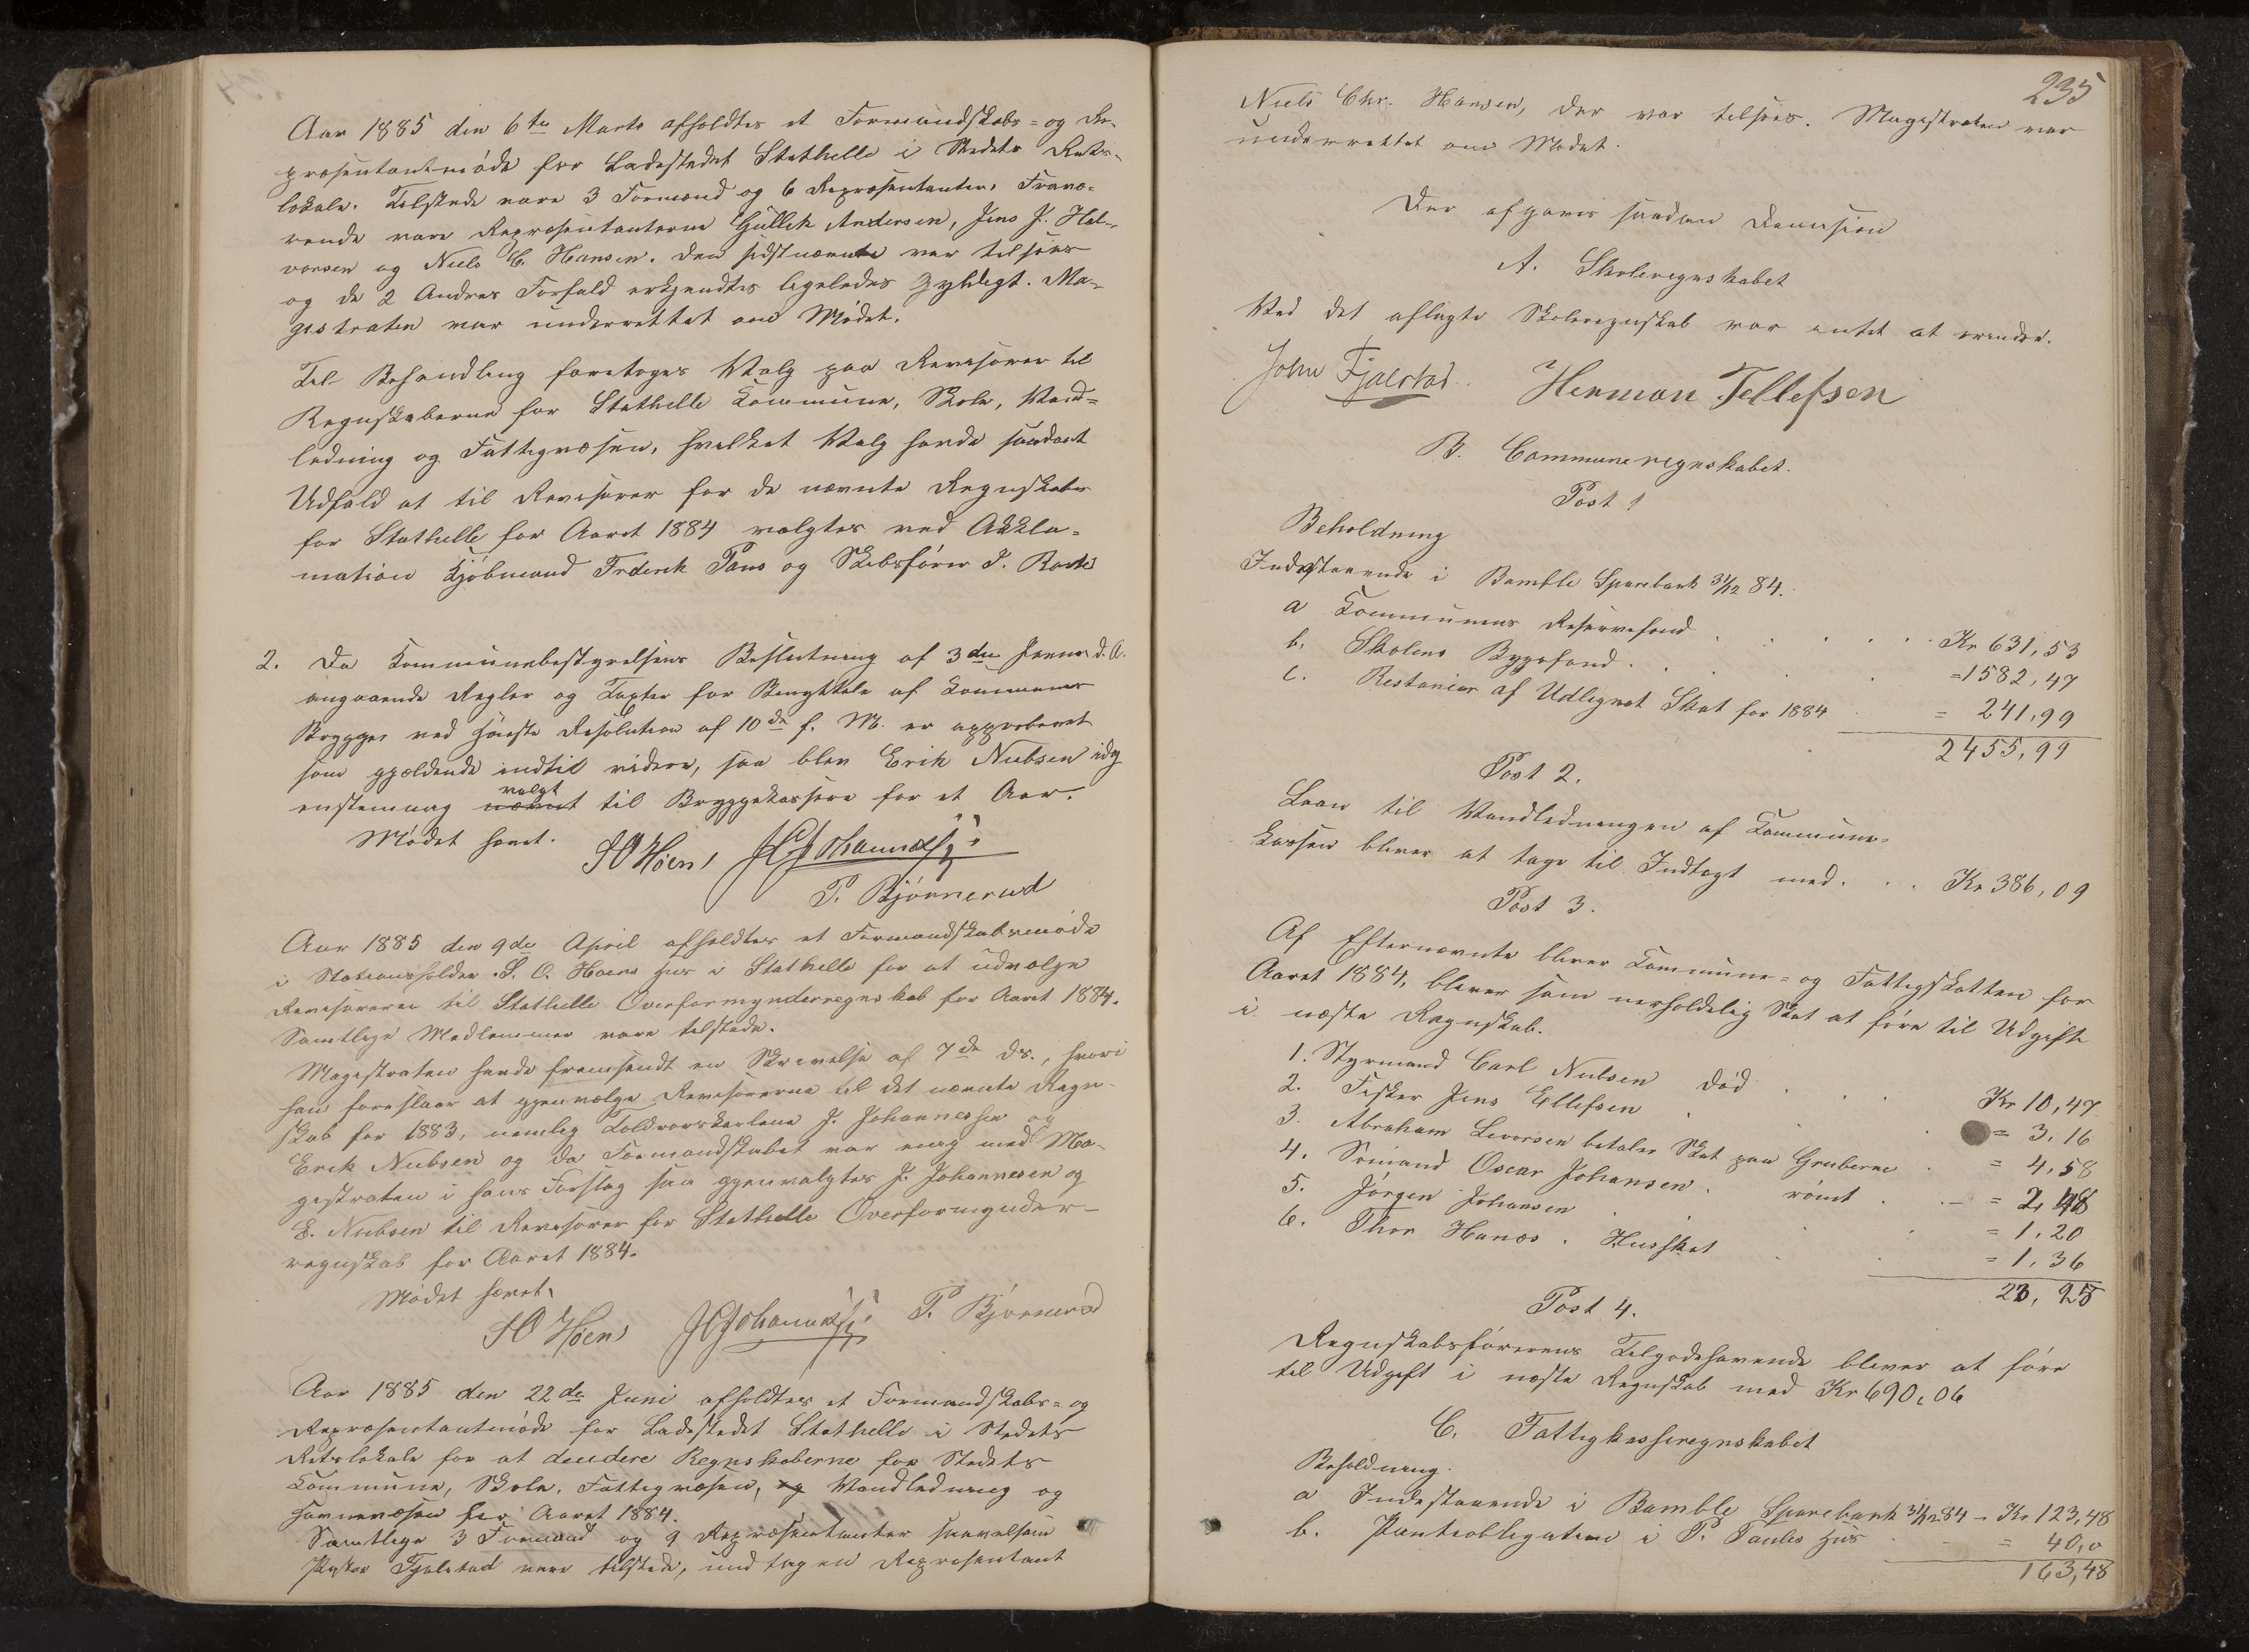 Aar 1885 den 6te Marts afholdtes et Formandskabs- og Re-
præsentantmøde for Ladestedet Stathelle i Stedets Rets-
lokale. Tilstede vare 3 Formænd og 6 Repræsentanter. Fravæ-
rende vare Repræsentanterne Gullik Andersen, Jens J. Hal-
vorsen og Niels C. Hansen. Den sidstnævnte var tilsjøs
og de 2 Andres Forfald erkjendtes ligeledes gyldigt. Ma-
gistraten var underrettet om Mødet.
Til Behandling foretoges Valg paa Revisorer til
Regnskaberne for Stathelle Kommune, Skole, Vand-
ledning og Fattigvæsen, hvilket Valg havde saadant
Udfald at til Revisorer for de nævnte Regnskaber
for Stathelle for Aaret 1884 valgtes ved Akkla-
mation Kjøbmand Frderik Paus og Skibsfører P.
2. Da Kommunebestyrelsens Beslutning af 3die Januar d. A.
angaaende Regler og Taxter for Benyttelse af Kommunens
Brygger ved høieste Resolution af 10de f. M. er approberet
som gjældende indtil videre, saa blev Erik Nielsen idag
enstemmig nævnt valgt til Bryggekasserer for et Aar.
Mødet hævet.
S O Høen J C Johannes
P. Bjønnerud
Aar 1885 den 9de April afholdtes et Formandskabsmøde
i Stationsholder S. O. Høens Hus i Stathelle for at udvælge
Revisorerne til Stathelle Overformynderregnskab for Aaret 1884.
Samtlige Medlemmer vare tilstede.
Magistraten havde fremsendt en Skrivelse af 7de ds., hvori
han foreslaar at gjenvælge Revisorerne til det nævnte Regn-
skab for 1883, nemlig J. Johannessen og
Erik Nielsen og da Formandskabet var enig med Ma-
gistraten i hans Forslag saa gjenvalgtes J. Johannesen og
E. Nielsen til Revisorer for Stathelle Overformynder-
regnskab for Aaret 1884.
Mødet hævet.
S O Høen J C Johannes P. Bjønnerud
Aar 1885 den 22de Juni afholdtes et Formandskabs- og
Repræsentantmøde for Ladestedet Stathelle i Stedets
Retslokale for at decidere Regnskaberne for Stedets
Kommune, Skole, Fattigvæsen, og Vandledning og
Havnevæsen for Aaret 1884.
Samtlige 3 Formænd og 9 Repræsentanter saavelsom
Pastor Fjælstad vare tilstede, undtagen Repræsentant
235
Niels Chr. Hansen, der var tilsjøs. Magistraten var
underrettet om Mødet.
Der afgaves saadan Decision
A. Skoleregnskabet
Ved det aflagte Skoleregnskab var intet at erindre.
John Fjælstad. Herman Tellefsen
B. Communeregnskabet.
Post 1
Beholdning
Indestaaende i Bamble Sparebank 31/12 84.
a Kommunens Reservefond . . . . . Kr 631,53
b. Skolens Byggefond . . . = 1582,47
c. Restancer af Udlignet Skat for 1884 = 241,99
2455,99
Post 2.
Laan til Vandledningen af Kommune-
kassen bliver at tage til Indtægt med . . . Kr 386,09
Post 3.
Af Efternævnte bliver Kommune- og Fattigskatten for
Aaret 1884, bliver som uerholdelig Skat at føre til Udgift
i næste Regnskab.
1. Styrmand Carl Nielsen død . . . Kr 10,47
2. Fisker Jens Ellefsen . . = 3,16
3. Abraham Levorsen betaler Skat paa Gruberne . = 4,58
4. Sømand Oscar Johansen . rømt . = 2,48
5. Jørgen Johansen . . = 1,20
6. Thor Hanes . Husskat . . = 1,36
23,25
Post 4.
Regnskabsførerens Tilgodehavende bliver at føre
til Udgift i næste Regnskab med Kr 690,06
C. Fattigkasseregnskabet
Beholdning.
a Indestaaende i Bamble Sparebank 31/12 84 - Kr 123,48
b. Panteobligation i P. Paules Hus . = 40,0
163,48